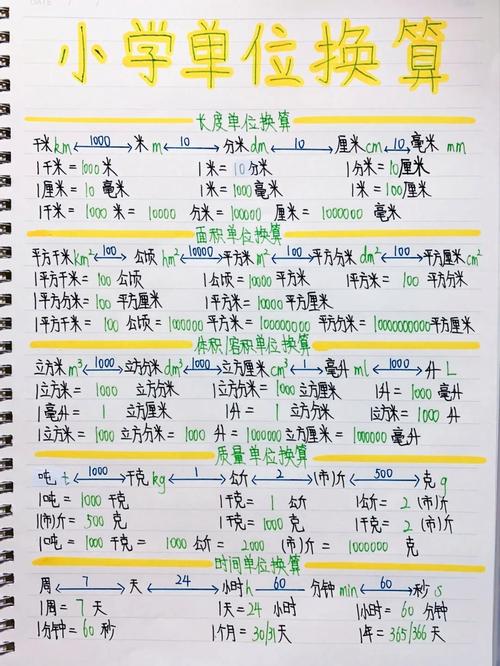 小学单位换算
长度单位换算
千米km ←1000→ 米 m ←10→ 分米 dm ←10→ 厘米 cm ←10→ 毫米 mm
1千米=1000米 1米=10分米 1分米=10厘米
1厘米=10毫米 1米=1000毫米 1米=100厘米
1千米=1000米=10000分米=100000厘米=1000000毫米
面积单位换算
平方千米km² ←100→ 公顷 hm² ←10000→ 平方米 m² ←100→ 平方分米 dm² ←100→ 平方厘米 cm²
1平方千米=100公顷 1公顷=10000平方米 1平方米=100平方分米
1平方分米=100平方厘米 1平方米=10000平方厘米
1平方千米=100公顷=1000000平方米=100000000平方分米=10000000000平方厘米
体积/容积单位换算
立方米 m³ ←1000→ 立方分米 dm³ ←1000→ 立方厘米 cm³ ←1→ 毫升 ml ←1000→ 升 L
1立方米=1000立方分米 1立方分米=1000立方厘米 1升=1000毫升
1毫升=1立方厘米 1升=1立方分米 1立方米=1000升
1立方米=1000立方分米=1000升=1000000立方厘米=1000000毫升
质量单位换算
吨 t ←1000→ 千克 kg ←1→ 公斤 ←2→ (市)斤 ←500→ 克 g
1吨=1000千克 1千克=1公斤 1公斤=2(市)斤
1(市)斤=500克 1千克=1000克 1千克=2(市)斤
1吨=1000千克=1000公斤=2000(市)斤=1000000克
时间单位换算
周 ←7→ 天 ←24→ 小时h ←60→ 分钟 min ←60→ 秒 s
1周=7天 1天=24小时 1小时=60分钟
1分钟=60秒 1个月=30/31天 1年=365/366天